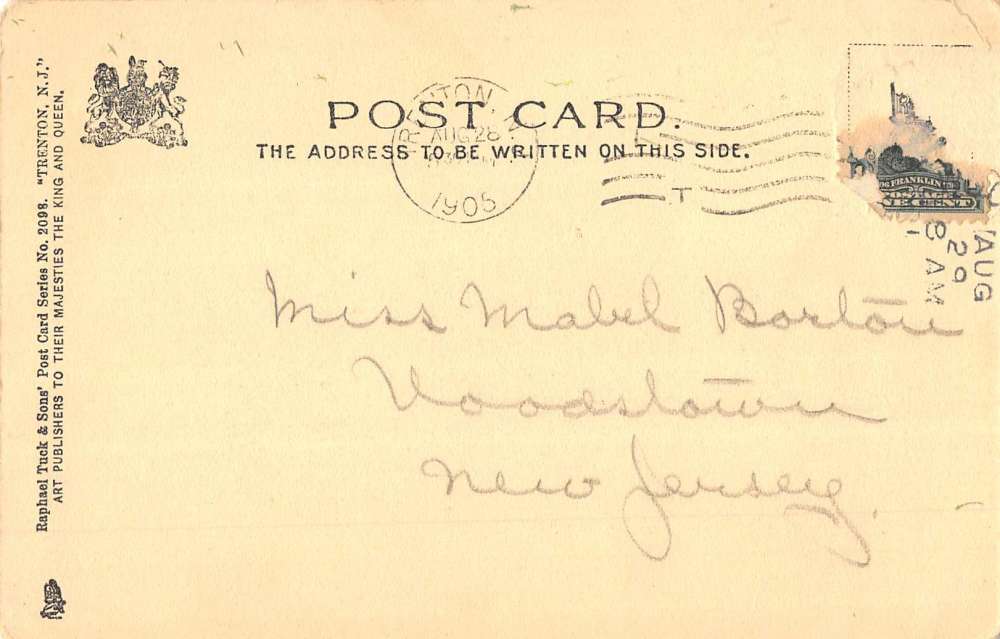 Raphael Tuck & Sons' Post Card Series No. 2098. "TRENTON, N. J."
ART PUBLISHERS TO THEIR MAJESTIES THE KING AND QUEEN.
POST CARD.
THE ADDRESS TO BE WRITTEN ON THIS SIDE.
TRENTON, N
AUG 28
1905
T
FRANKLIN
POSTAGE
ONE CENT
AUG
29
8 AM
Miss Mabel Borton
Woodstown
New Jersey.